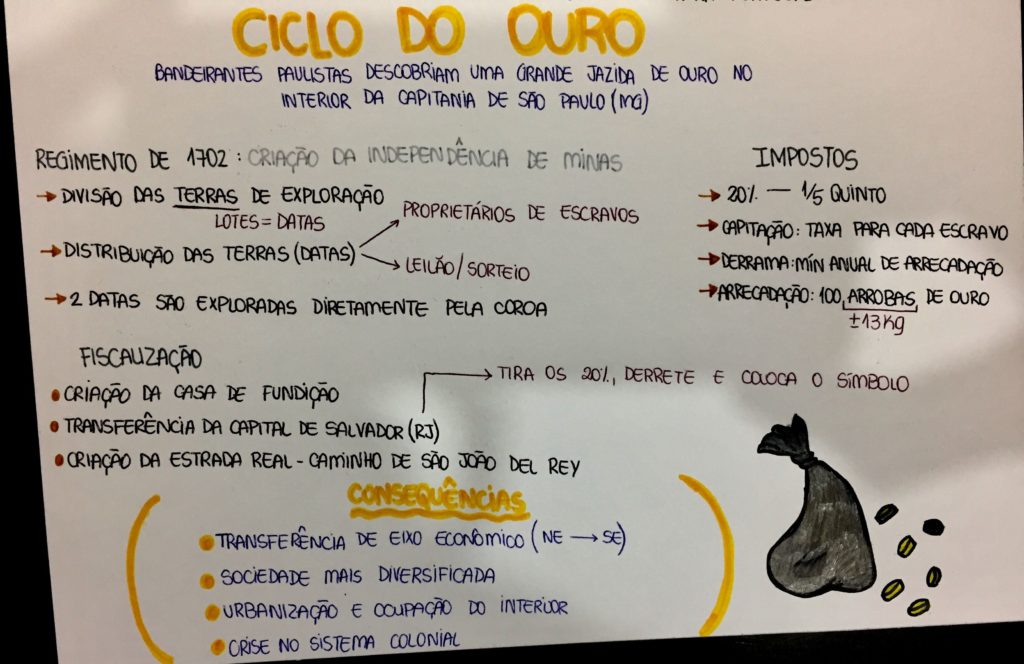 CICLO DO OURO
BANDEIRANTES PAULISTAS DESCOBRIAM UMA GRANDE JAZIDA DE OURO NO
INTERIOR DA CAPITANIA DE SÃO PAULO (MG)
REGIMENTO DE 1702 : CRIAÇÃO DA INDEPENDÊNCIA DE MINAS
→ DIVISÃO DAS TERRAS DE EXPLORAÇÃO
LOTES = DATAS
→ DISTRIBUIÇÃO DAS TERRAS (DATAS)
PROPRIETÁRIOS DE ESCRAVOS
LEILÃO / SORTEIO
→ 2 DATAS SÃO EXPLORADAS DIRETAMENTE PELA COROA
IMPOSTOS
→ 20% — 1/5 QUINTO
→ CAPITAÇÃO: TAXA PARA CADA ESCRAVO
→ DERRAMA: MÍN ANUAL DE ARRECADAÇÃO
→ ARRECADAÇÃO: 100 ARROBAS DE OURO
±13Kg
FISCALIZAÇÃO
• CRIAÇÃO DA CASA DE FUNDIÇÃO
→ TIRA OS 20%, DERRETE E COLOCA O SÍMBOLO
• TRANSFERÊNCIA DA CAPITAL DE SALVADOR (RJ)
• CRIAÇÃO DA ESTRADA REAL - CAMINHO DE SÃO JOÃO DEL REY
CONSEQUÊNCIAS
• TRANSFERÊNCIA DE EIXO ECONÔMICO (NE → SE)
• SOCIEDADE MAIS DIVERSIFICADA
• URBANIZAÇÃO E OCUPAÇÃO DO INTERIOR
• CRISE NO SISTEMA COLONIAL